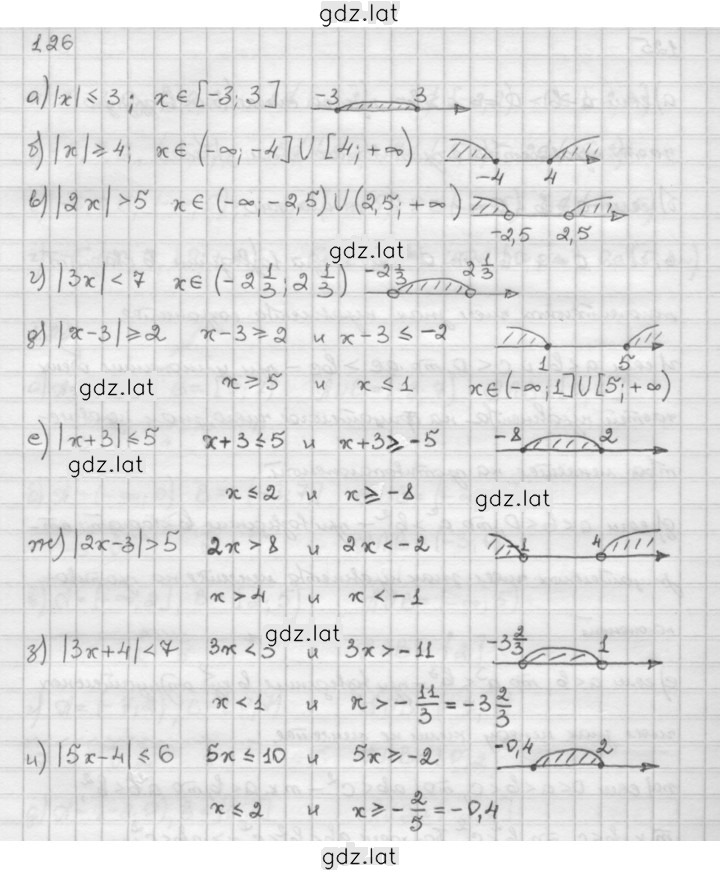 gdz.lat
126
а) |x| ≤ 3; x ∈ [-3; 3] -3 3
б) |x| ≥ 4; x ∈ (-∞; -4] U [4; +∞) -4 4
в) |2x| > 5 x ∈ (-∞; -2,5) U (2,5; +∞) -2,5 2,5
gdz.lat
г) |3x| < 7 x ∈ (-2 1/3; 2 1/3) -2 1/3 2 1/3
д) |x-3| ≥ 2 x-3 ≥ 2 и x-3 ≤ -2 1 5
gdz.lat x ≥ 5 и x ≤ 1 x ∈ (-∞; 1] U [5; +∞)
е) |x+3| ≤ 5 x+3 ≤ 5 и x+3 ≥ -5 -8 2
gdz.lat
x ≤ 2 и x ≥ -8 gdz.lat
ж) |2x-3| > 5 2x > 8 и 2x < -2 -1 4
x > 4 и x < -1
gdz.lat
з) |3x+4| < 7 3x < 3 и 3x > -11 -3 2/3 1
x < 1 и x > - 11/3 = -3 2/3
и) |5x-4| ≤ 6 5x ≤ 10 и 5x ≥ -2 -0,4 2
x ≤ 2 и x ≥ - 2/5 = -0,4
gdz.lat